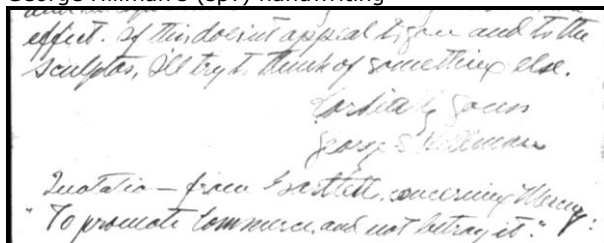 George Hillman's (sp?) handwriting
effect. If this doesn't appeal to you and to the
sculptor, I'll try to think of something else.
Cordially yours
George S Hillman
Quotation — from Bartlett, concerning Mercury:
"To promote Commerce, and not betray it."